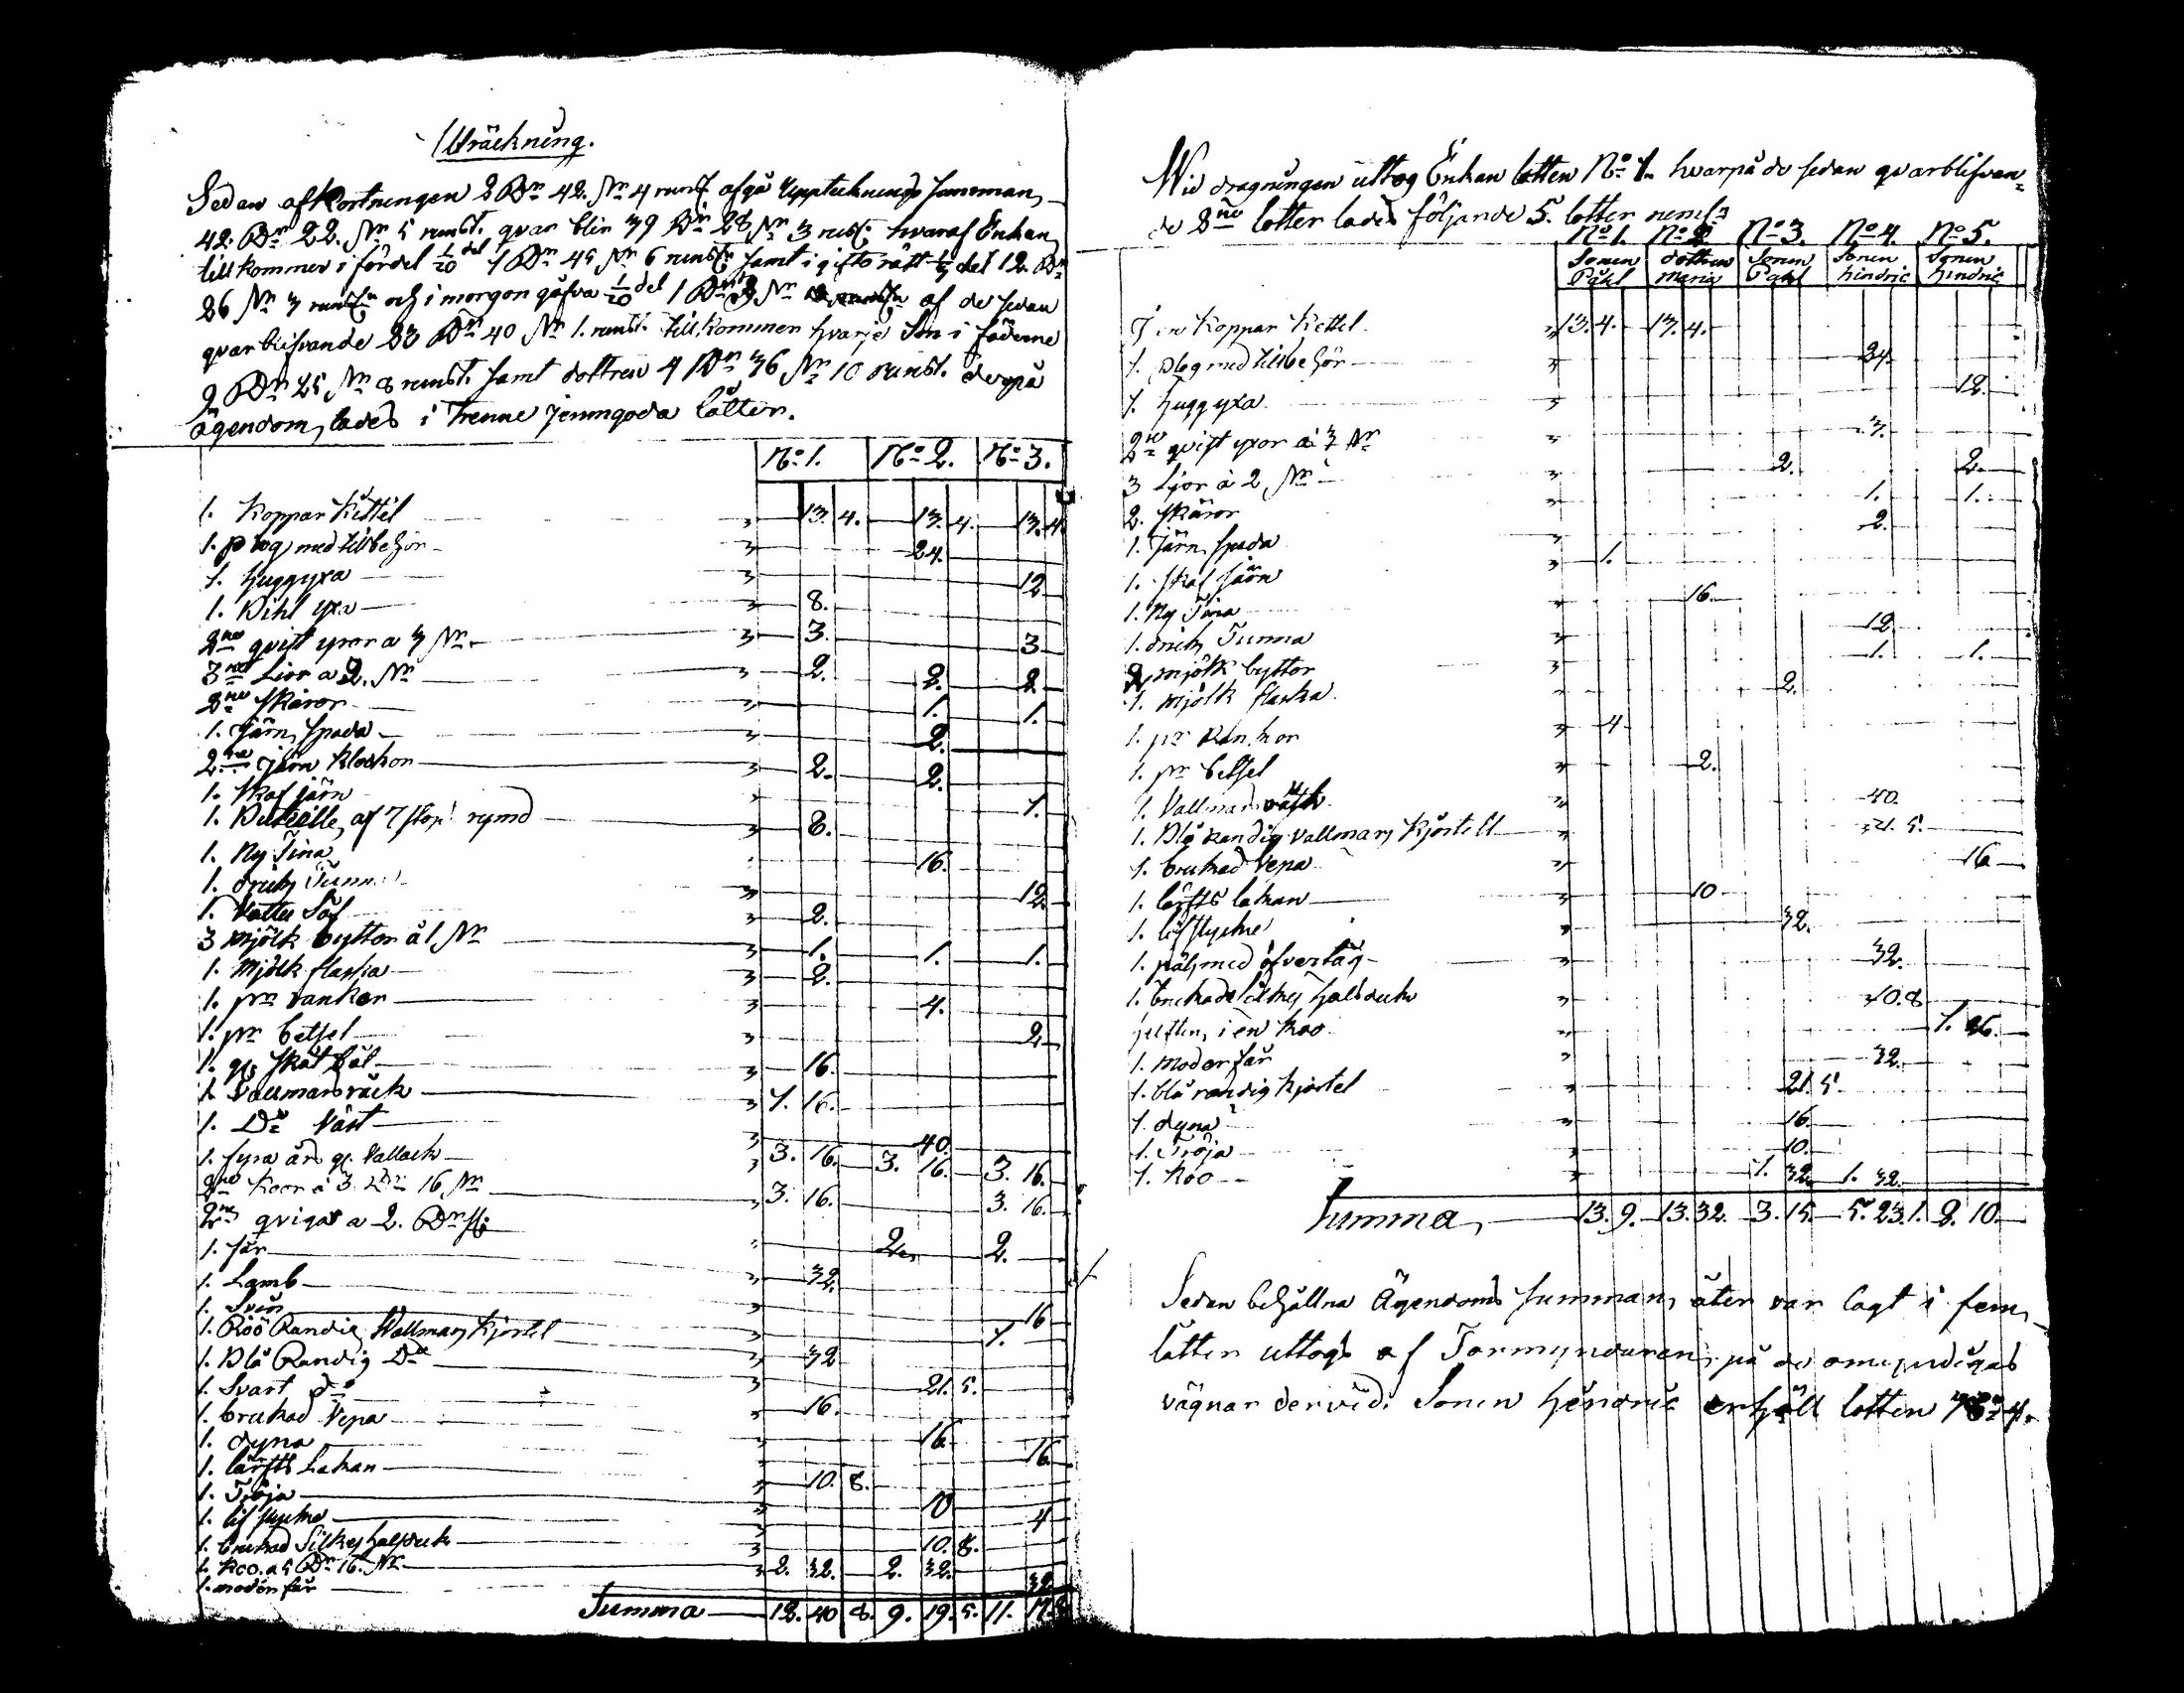 Uträckning.
Sedan afkortningen 2 Rdr 42 sk 4 runst. afgå Upptecknings Summan
42. Rdr 22. sk 5 runst. qvar blir 39 Rdr 28 sk 3 runst: hvaraf Enkan
tillkommer i fördel 1/20 del 1 Rdr 45 sk 6 runst. samt i giftorätt 1/3 del 12. Rdr
26 sk 3 runst. och i morgon gåfva 1/20 del 1 Rdr sk af de sedan
qvarblifvande 23 Rdr 40 sk 1. runst. tillkommer hvarje Son i fäderne
9 Rdr 25 sk 8 runst. samt dottren 4 Rdr 36 sk 10 runst. derpå
ägendom lades i trenne jemngoda låtter.
No 1. No 2. No 3.
1. Koppar Kittel 13. 4. 13. 4. 13. 4
1. plog med tillbehör 24.
1. huggyxa 12
1. Bihl yxa 8.
2ne qvist yxor a 3 sk 3. 3
3ne Lior a 2. sk 2. 2. 2
2ne skäror 1. 1.
1. Järn spada 2.
2ne järn Klockor 2. 2.
1. skaf järn 1.
1. Buteille af 7 stop rymd 8.
1. Ny Tina 16.
1. drick Tunna 12
1. Vatten Så 2.
3 mjölk byttor à 1 sk 1. 1. 1.
1. Mjölk flaska 2.
1. pr rankor 4.
1. pr betsel 2
1. gl. skåt bål 16.
1. Vallmansråck 1. 16.
1. Do Väst 40.
1. fyra års gl. Vallack 3. 16. 3. 16. 3. 16.
2ne Koor à 3. Rdr 16 sk 3. 16. 3. 16.
2ne qvigor a 2. Rdr 2. 2.
1. får 32.
1. Lamb 16
1. Svin 1.
1. Röö Randig Wallmans Kjortel 32
1. Blå Randig Do 21. 5.
1. Svart do 16.
1. brukad Vepa 16.
1. dyna 16.
1. lärfts Lakan 10. 8.
1. Tröja 10
1. lif stycke 4
1. brukad Silkes halsduk 10. 8.
1. Koo. a 5 Rdr 16. sk 2. 32. 2. 32.
1. moder får 32
Summa 12. 40 8. 9. 19. 5. 11. 17. 8
Wid dragningen uttog Enkan lotten No 1. hvarpå de sedan qvarblifvan=
de 2ne lotter lades följande 5. lotter neml:
No 1. No 2 No 3. No 4. No 5.
Sonen Påhl dottren Maria Sonen Pahl Sonen hindric Sonen hindric
En Koppar Kettel 13. 4. 13. 4.
1. plog med tillbehör 24.
1. huggyxa 12.
2ne qvist yxor à 3 sk 3.
3 Lior à 2 sk 2. 2.
2. skäror 1. 1.
1. Järn spada 2.
1. skaf järn 1.
1. Ny Tina 16.
1. drick Tunna 12
2 mjölk byttor 1. 1.
1. Mjölk flaska 2.
1. pr Rankor 4
1. pr betsel 2.
1. Vallmans väst 40.
1. Blå randig vallmans Kjortell 21. 5.
1. brukad Vepa 16
1. lärfts lakan 10
1. lif stycke 32.
1. päls med öfvertåg 32.
1. brukad silkes halsduk 10. 8
helften i en Koo 1. 26.
1. moder får 32.
1. blå randig kjortel 21. 5.
1. dyna 16.
1. Tröja 10.
1. Koo 1. 32. 1. 32.
Summa 13. 9. 13. 32. 3. 15. 5. 23. 1. 2. 10.
Sedan behållna Ägendoms summan åter var lagt i fem
låtter uttogs af Förmyndaren på de omyndigas
vägnar dervid. Sonen Hendric erhöll lotten No 4.